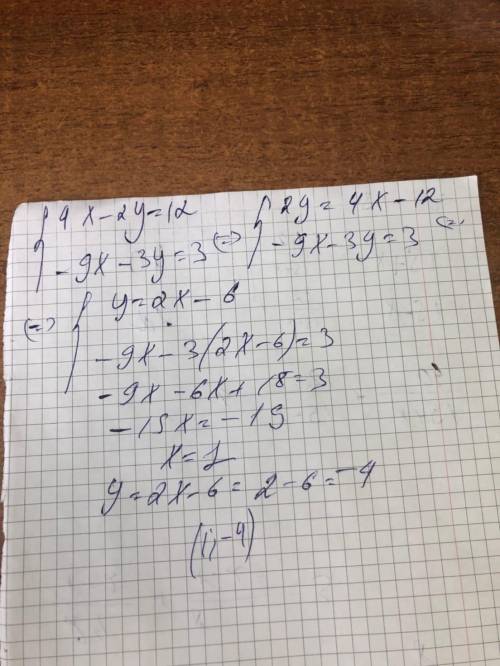 { 4x-2y=12 (=>) { 2y=4x-12 (=>
-9x-3y=3 -9x-3y=3
(=>) { y=2x-6
-9x-3(2x-6)=3
-9x-6x+18=3
-15x=-15
x=1
y=2x-6=2-6=-4
(1;-4)